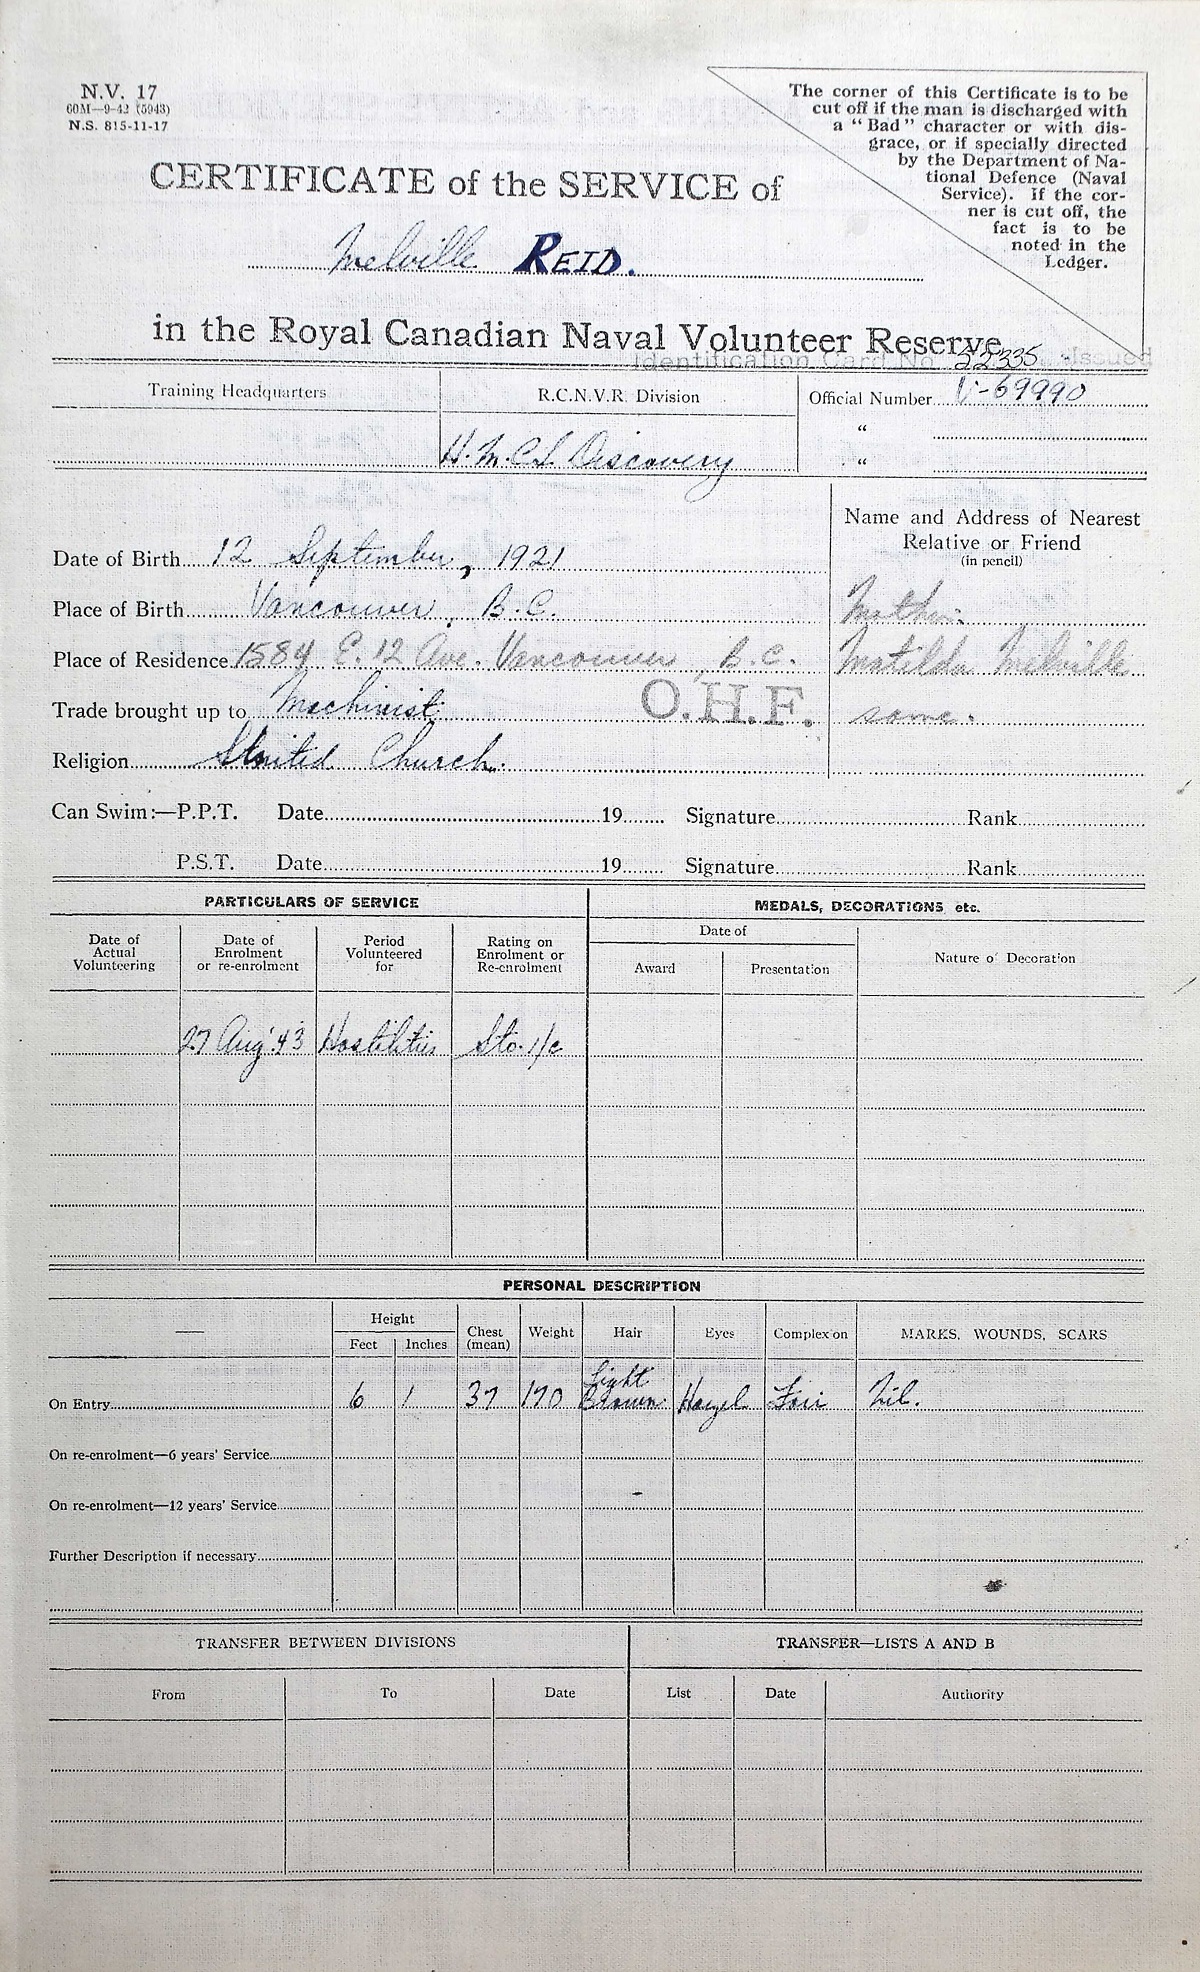 N.V. 17
60M—9-42 (5943)
N.S. 815-11-17
The corner of this Certificate is to be
cut off if the man is discharged with
a "Bad" character or with dis-
grace, or if specially directed
by the Department of Na-
tional Defence (Naval
Service). If the cor-
ner is cut off, the
fact is to be
noted in the
Ledger.
CERTIFICATE of the SERVICE of
Melville REID.
in the Royal Canadian Naval Volunteer Reserve
Identification Card No. 22335 Issued
Training Headquarters R.C.N.V.R. Division Official Number V-69990
"
H.M.C.S. Discovery "
Name and Address of Nearest
Relative or Friend
(in pencil)
Date of Birth 12 September, 1921
Place of Birth Vancouver, B.C. Mother.
Place of Residence 1584 E. 12 Ave. Vancouver, B.C. Matilda Melville
Trade brought up to Machinist O.H.F. same.
Religion United Church.
Can Swim:—P.P.T. Date 19 Signature Rank
P.S.T. Date 19 Signature Rank
PARTICULARS OF SERVICE MEDALS, DECORATIONS etc.
Date of Actual Volunteering Date of Enrolment or re-enrolment Period Volunteered for Rating on Enrolment or Re-enrolment Date of Nature o Decoration
Award Presentation
27 Aug '43 Hostilities Sto. 1/c
PERSONAL DESCRIPTION
Height Chest (mean) Weight Hair Eyes Complex on MARKS, WOUNDS, SCARS
Feet Inches
On Entry 6 1 37 170 Light Brown Hazel Fair Nil.
On re-enrolment—6 years' Service
On re-enrolment—12 years' Service
Further Description if necessary
TRANSFER BETWEEN DIVISIONS TRANSFER—LISTS A AND B
From To Date List Date Authority